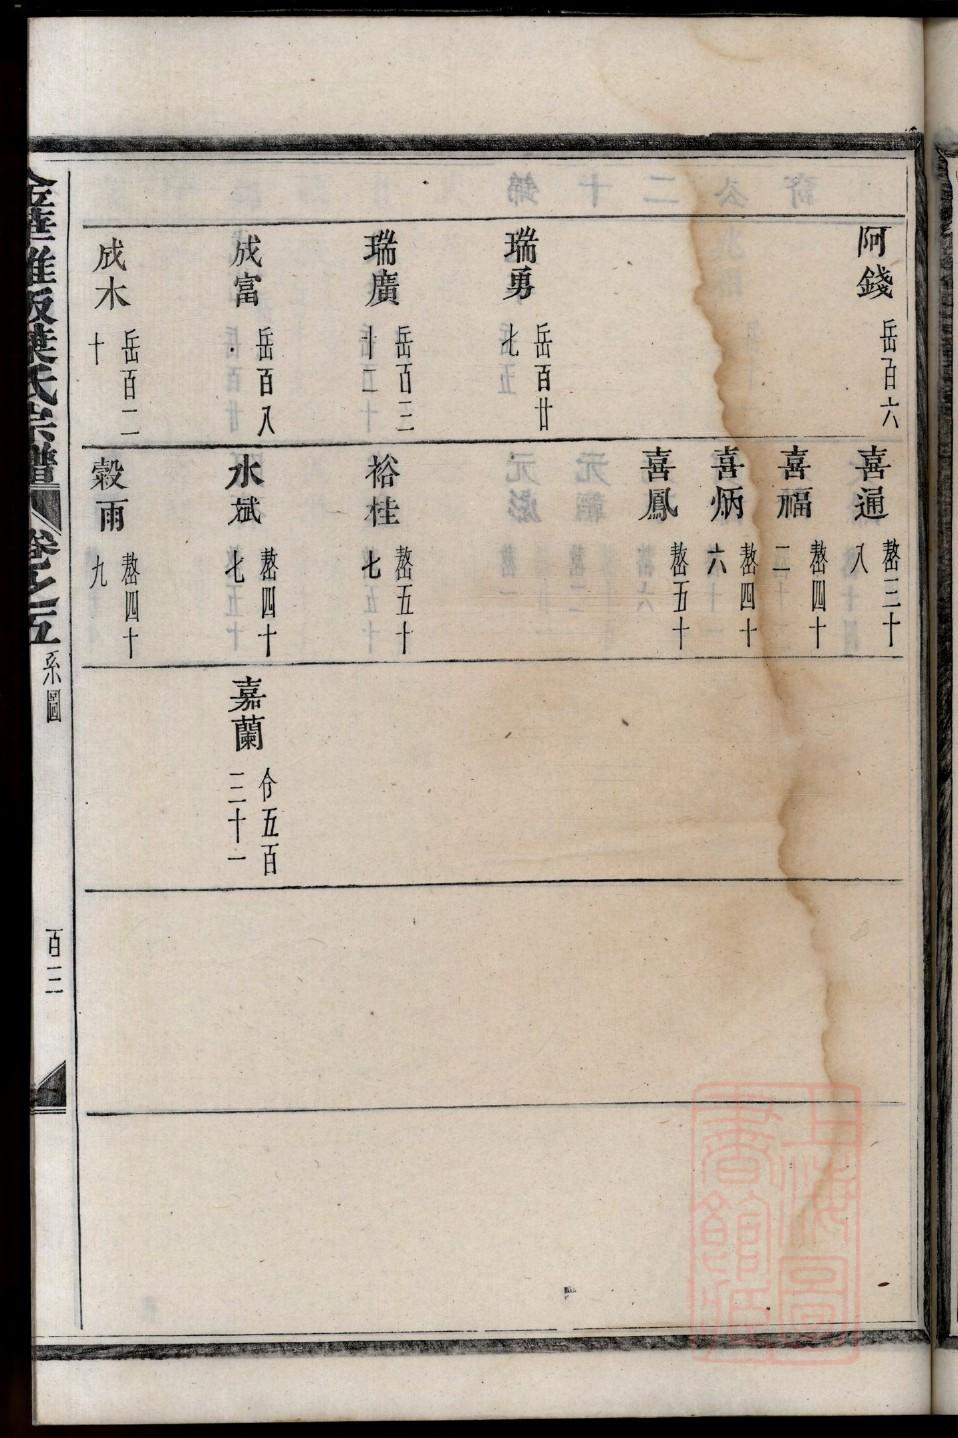 阿錢 岳百六
瑞勇 岳百廿七
瑞廣 岳百三十二
成富 岳百八
成木 岳百二十
喜通 嶅三十八
喜福 嶅四十二
喜炳 嶅四十六
喜鳳 嶅五十
裕桂 嶅五十七
水斌 嶅四十七
穀雨 嶅四十九
嘉蘭 仱五百三十一
金華雅畈葉氏宗譜 卷之五 系圖 百三